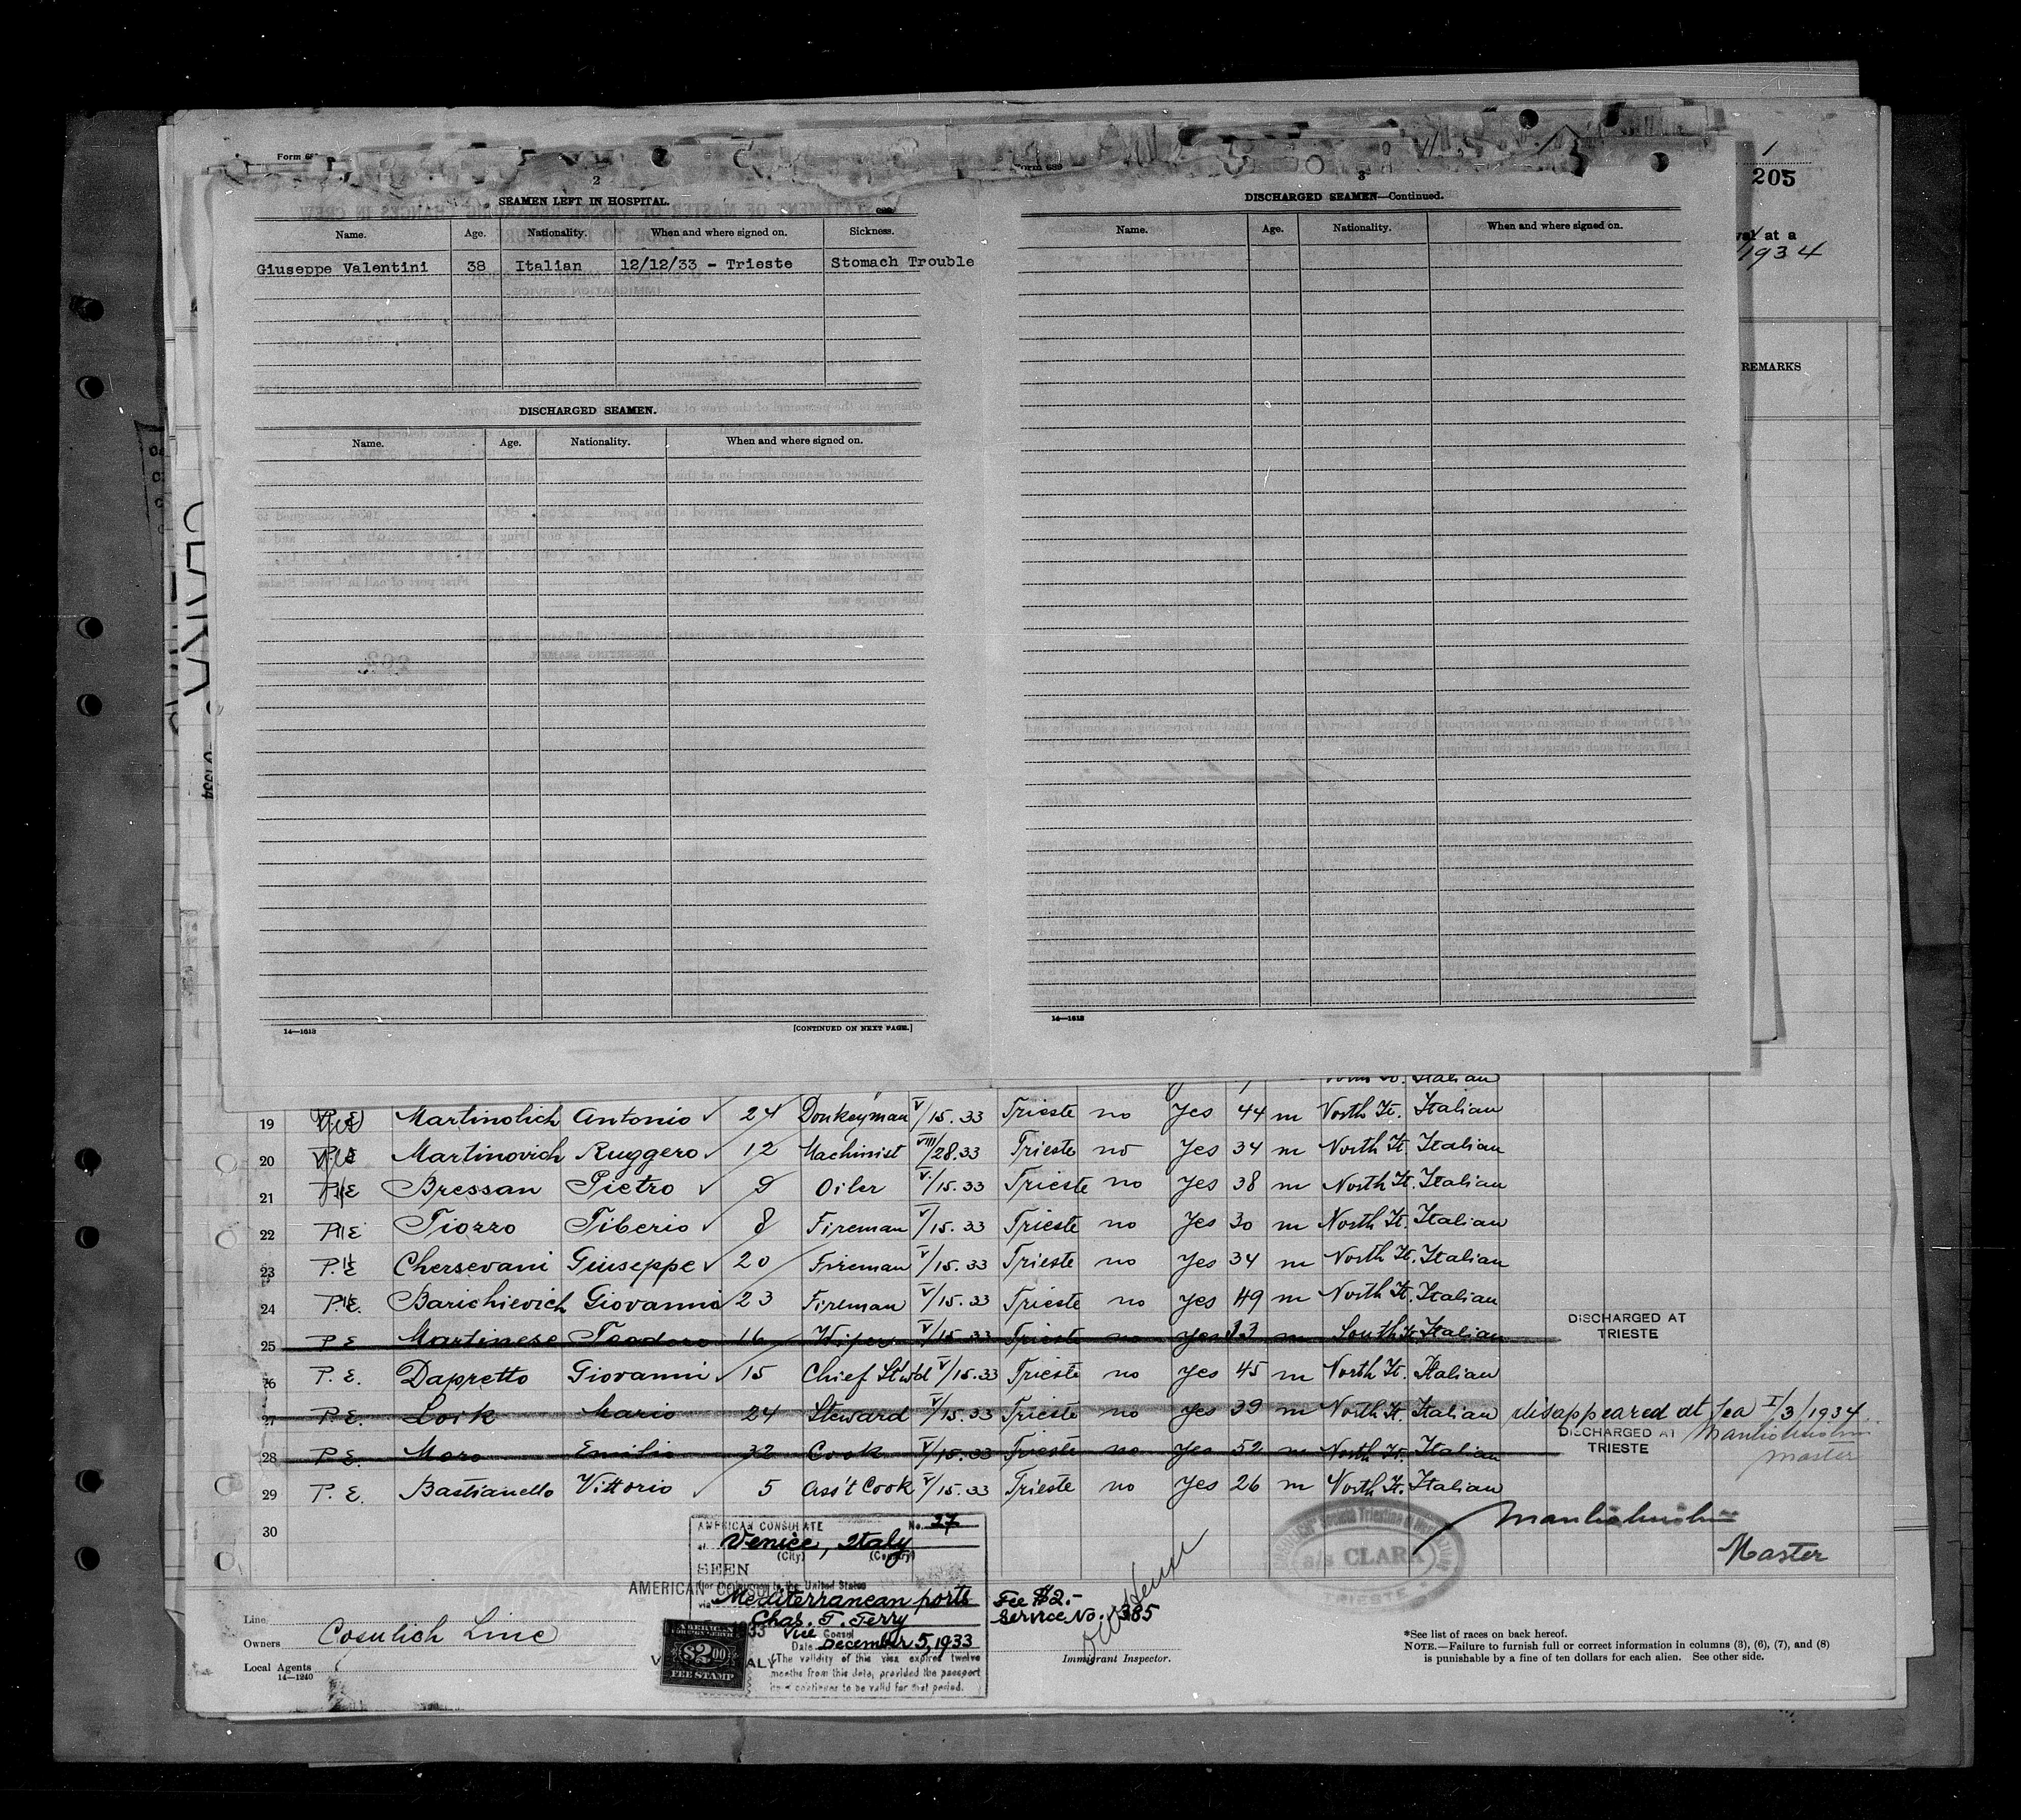 Form 6
1
205
2
SEAMEN LEFT IN HOSPITAL.
Name. Age. Nationality. When and where signed on. Sickness.
Giuseppe Valentini 38 Italian 12/12/33 - Trieste Stomach Trouble
DISCHARGED SEAMEN.
Name. Age. Nationality. When and where signed on.
14—1613 [CONTINUED ON NEXT PAGE.]
3
DISCHARGED SEAMEN—Continued.
Name. Age. Nationality. When and where signed on.
14—1613
val at a
1934
REMARKS
CLARA
19 Martinolich Antonio ✓ 24 Donkeyman V/15.33 Trieste no Yes 44 m North It. Italian
20 Martinovich Ruggero ✓ 12 Machinist VIII/28.33 Trieste no Yes 34 m North It. Italian
21 P.E Bressan Pietro ✓ 9 Oiler V/15.33 Trieste no Yes 38 m North It. Italian
22 P.E Tiozzo Tiberio ✓ 8 Fireman V/15.33 Trieste no Yes 30 m North It. Italian
23 P.E Chersevani Giuseppe ✓ 20 Fireman V/15.33 Trieste no Yes 34 m North It. Italian
24 P.E. Barichievich Giovanni 23 Fireman V/15.33 Trieste no Yes 49 m North It. Italian
25 P E Martinese Teodoro 16 Wiper V/15.33 Trieste no yes 33 m South It. Italian DISCHARGED AT TRIESTE
26 P. E. Dapretto Giovanni ✓ 15 Chief St'wd V/15.33 Trieste no Yes 45 m North It. Italian
27 P.E. Loik Mario 24 Steward V/15.33 Trieste no Yes 39 m North It. Italian disappeared at sea I/3/1934
28 P.E. Moro Emilio 32 Cook V/15.33 Trieste no Yes 52 m North It. Italian DISCHARGED AT TRIESTE
master
29 P. E. Bastianello Vittorio ✓ 5 Ass't Cook V/15.33 Trieste no Yes 26 m North It. Italian
30
Master
AMERICAN CONSULATE No. 27
at Venice, Italy
(City) (Country)
SEEN
For the journey to the United States
AMERICAN CONSUL
via Mediterranean ports
Chas. T. Terry
Vice Consul
Date December 5, 1933
The validity of this visa expires twelve
months from this date, provided the passport
continues to be valid for that period.
AMERICAN
FOREIGN SERVICE
$2.00
FEE STAMP
Fee $2.-
Service No. 385
Immigrant Inspector.
s/s CLARA
TRIESTE
Line
Owners Cosulich Line
Local Agents
14—1240
*See list of races on back hereof.
NOTE.—Failure to furnish full or correct information in columns (3), (6), (7), and (8)
is punishable by a fine of ten dollars for each alien. See other side.